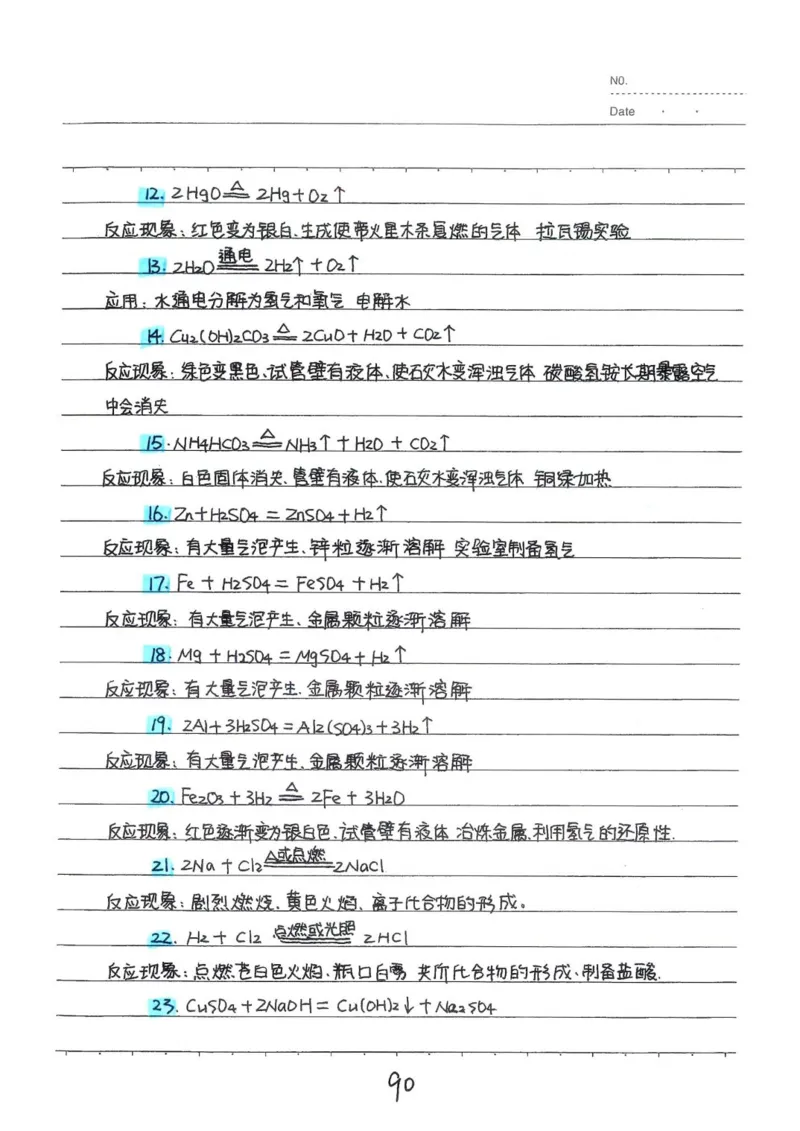 NO.
Date
12. 2HgO ≜ 2Hg+O2↑
反应现象:红色变为银白、生成使带火星木条复燃的气体 拉瓦锡实验
13. 2H2O 通电 2H2↑+O2↑
应用:水通电分解为氢气和氧气 电解水
14. Cu2(OH)2CO3 ≜ 2CuO+H2O+CO2↑
反应现象:绿色变黑色、试管壁有液体、使石灰水变浑浊气体 碳酸氢铵长期暴露空气
中会消失
15. NH4HCO3 ≜ NH3↑+H2O+CO2↑
反应现象:白色固体消失、管壁有液体、使石灰水变浑浊气体 铜绿加热
16. Zn+H2SO4=ZnSO4+H2↑
反应现象:有大量气泡产生、锌粒逐渐溶解 实验室制备氢气
17. Fe+H2SO4=FeSO4+H2↑
反应现象:有大量气泡产生、金属颗粒逐渐溶解
18. Mg+H2SO4=MgSO4+H2↑
反应现象:有大量气泡产生、金属颗粒逐渐溶解
19. 2Al+3H2SO4=Al2(SO4)3+3H2↑
反应现象:有大量气泡产生、金属颗粒逐渐溶解
20. Fe2O3+3H2 ≜ 2Fe+3H2O
反应现象:红色逐渐变为银白色、试管壁有液体 冶炼金属、利用氢气的还原性.
21. 2Na+Cl2 △或点燃 2NaCl
反应现象:剧烈燃烧、黄色火焰、离子化合物的形成。
22. H2+Cl2 点燃或光照 2HCl
反应现象:点燃苍白色火焰、瓶口白雾 共价化合物的形成、制备盐酸.
23. CuSO4+2NaOH=Cu(OH)2↓+Na2SO4
90